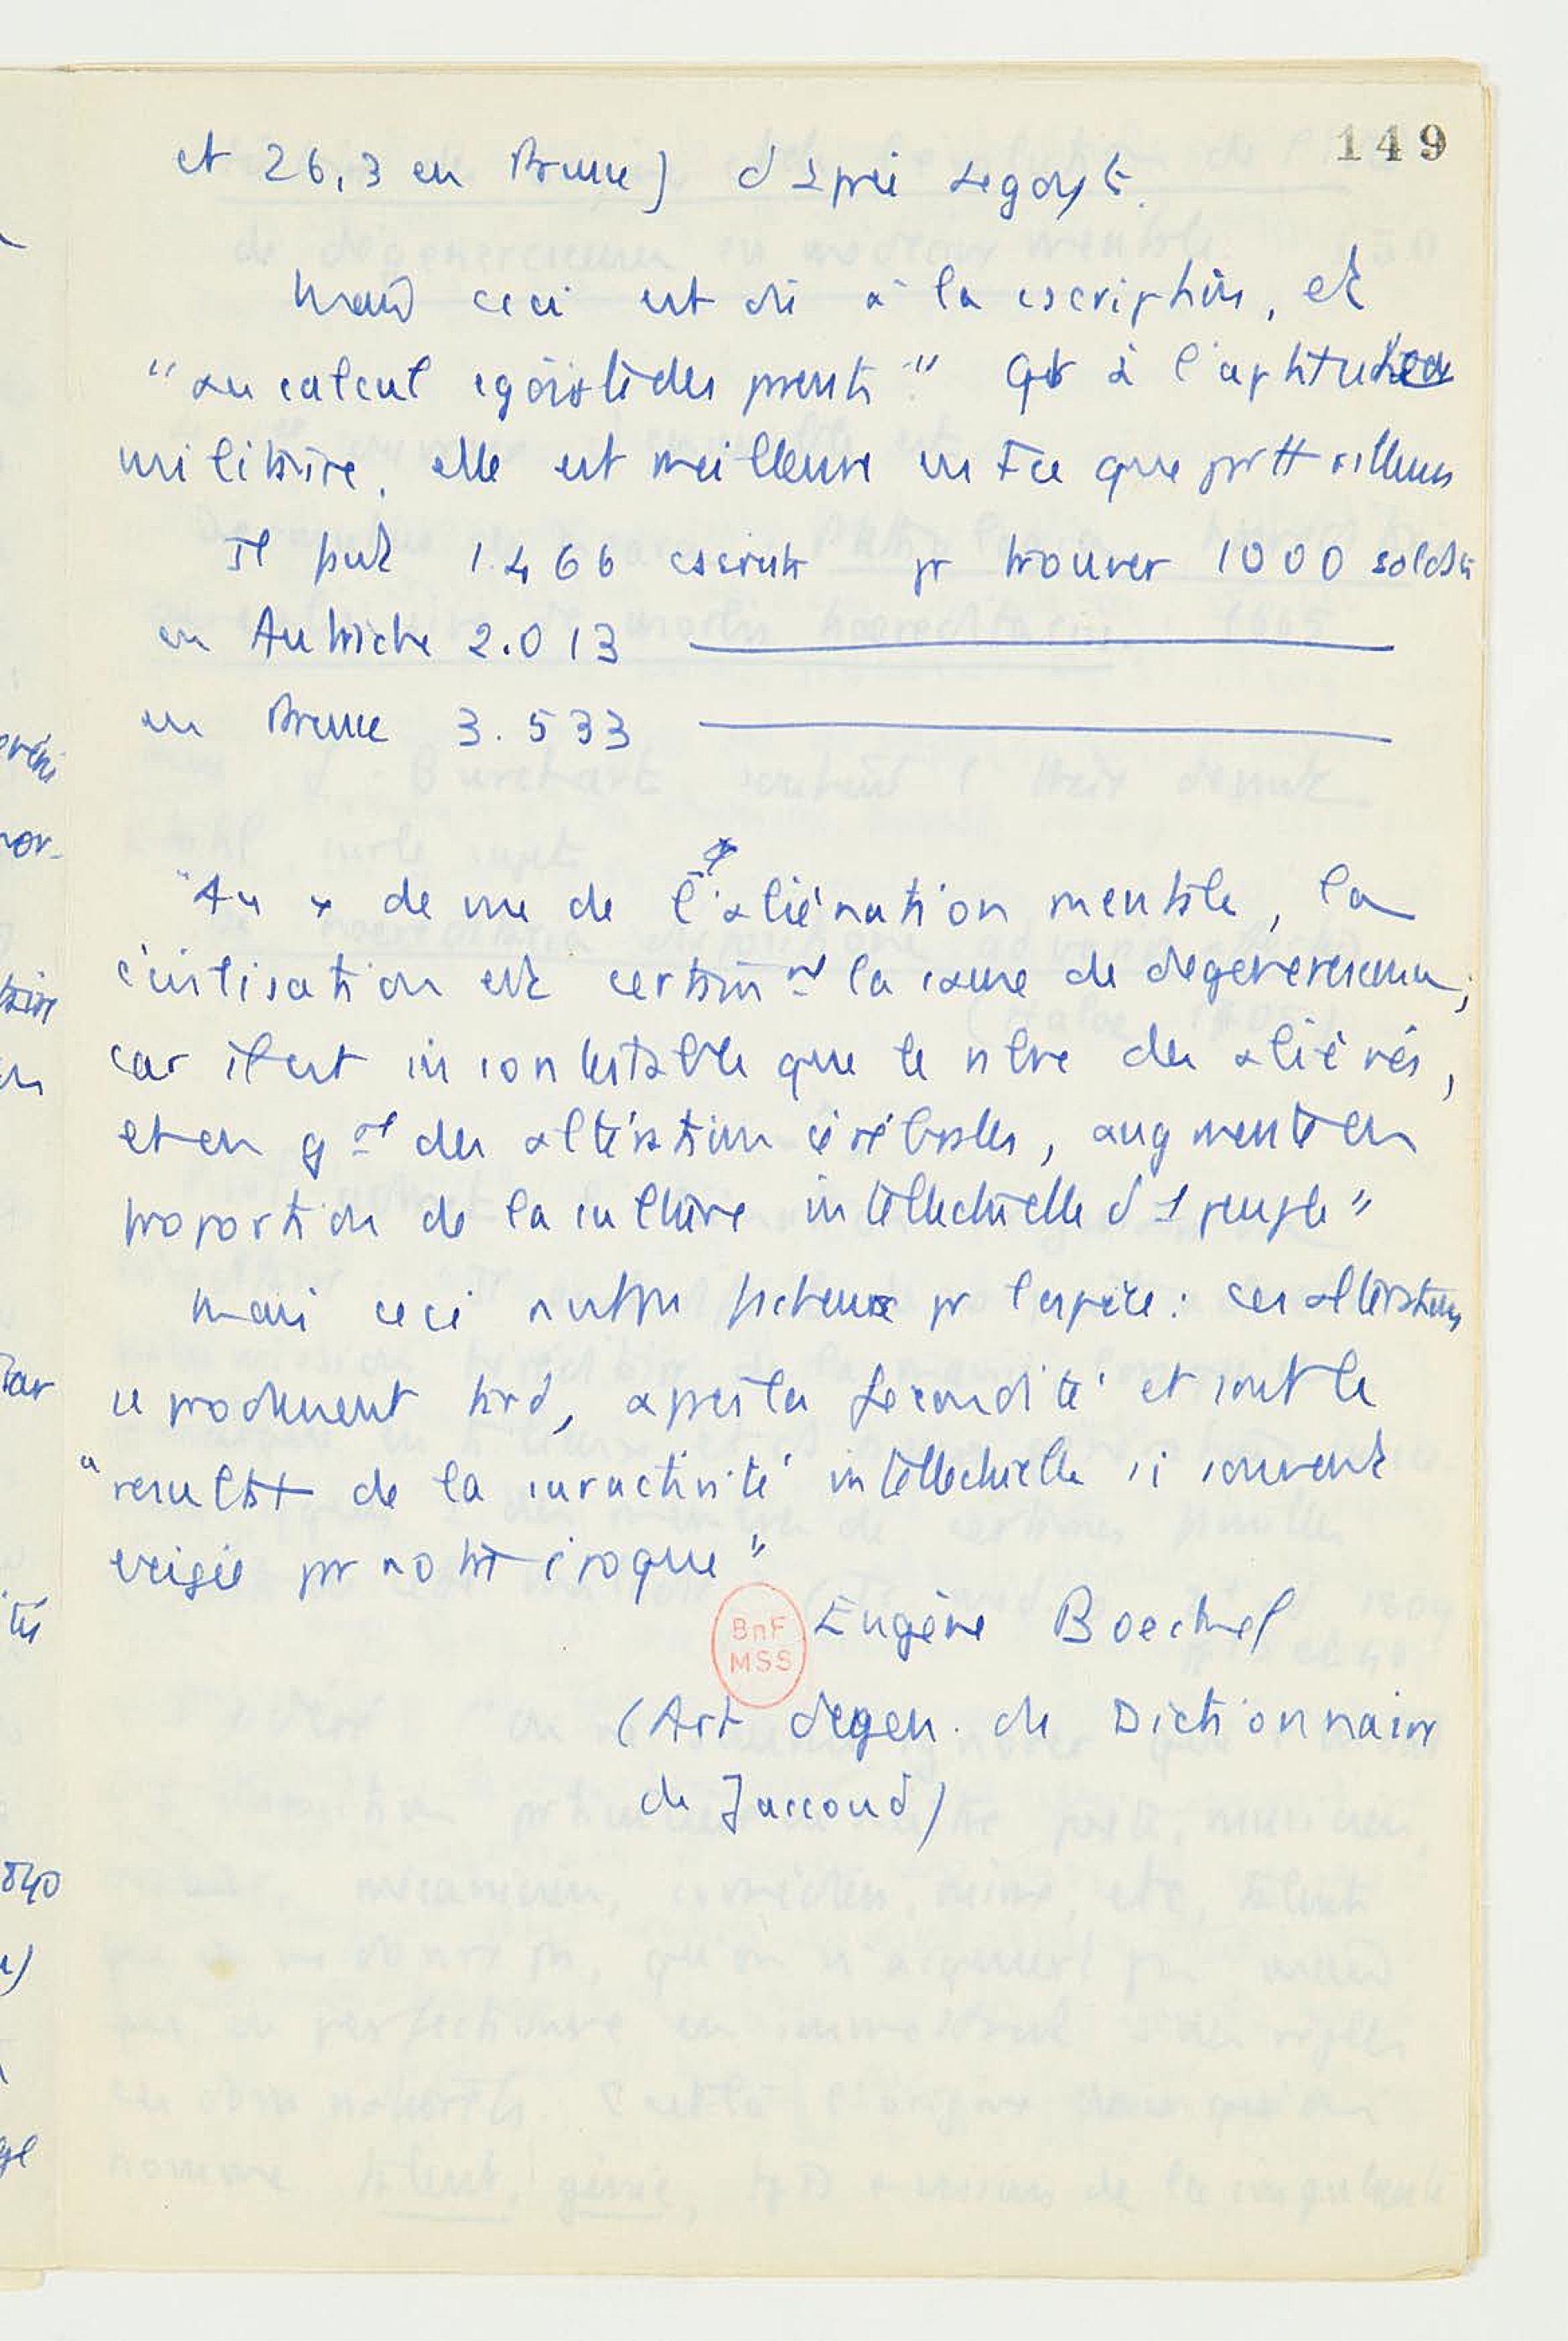 149
et 26,3 en Prusse) d'après Legoyt.
Mais ceci est dû à la cscription, et
"au calcul égoïste des parents." Qt à l'aptitude
militaire, elle est meilleure en Fce que prtt ailleurs
Il faut 1.466 cscrits pr trouver 1000 soldats
en Autriche 2.013
en Prusse 3.533
"Au x de vue de l'aliénation mentale, la
civilisation est certainnt la cause de dégénérescence;
car il est incontestable que le nbre des aliénés,
et en gal des altérations cérébrales, augmente en
proportion de la culture intellectuelle d'1 peuple"
Mais ceci n'est pas fâcheux pr l'espèce : ces altérations
se produisent tard, après la fécondité et sont le
"résultat de la suractivité intellectuelle si souvent
exigée par notre époque"
BnF
MSS
Eugène Boeckel
(Art dégén. du Dictionnaire
de Jaccoud)